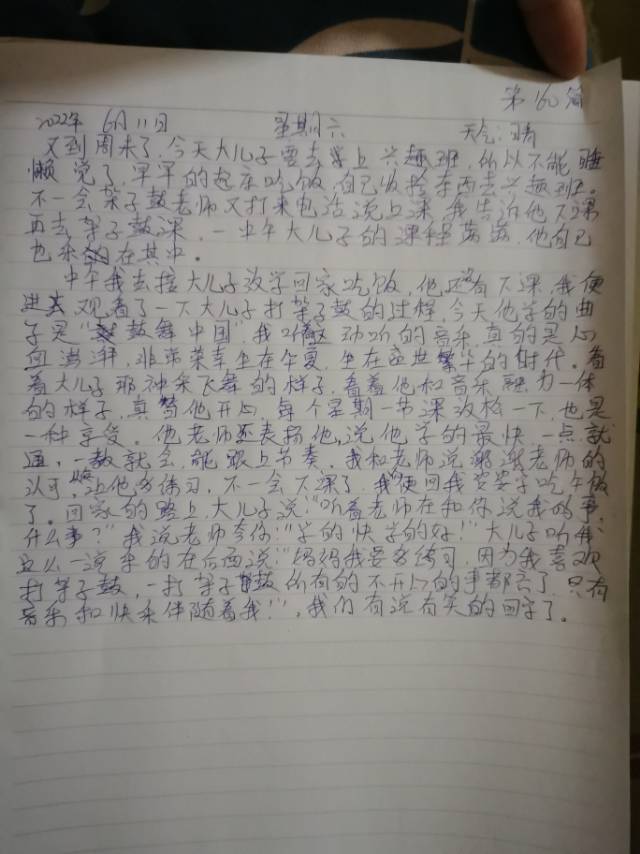 第160篇
2022年 6月11日 星期六 天气:晴
又到周末了,今天大儿子要去学上兴趣班,所以不能睡
懒觉了,早早的起床吃饭,自己收拾东西去兴趣班。
不一会架子鼓老师又打来电话说上课,我告诉他下课
再去架子鼓课,一中午大儿子的课程满满,他自己
也乐在其中。
中午我去接大儿子放学回家吃饭,他还没有下课,我便
进去观看了一下大儿子打架子鼓的过程,今天他学的曲
子是“鼓舞中国”,我听 动听的音乐,真的是心
血澎湃,非常荣幸生在华夏,生在这世繁华的时代。看
着大儿子那神采飞舞的样子,看着他和音乐融为一体
的样子,真替他开心,每个星期一节课放松一下,也是
一种享受。他老师还表扬他,说他学的最快,一点就
通,一教就会,能跟上节奏,我和老师说谢谢老师的
认可, 让他多练习,不一会下课了,我便回我 家吃午饭
了。回家的路上,大儿子说:“听着老师在和你说我的事,
什么事?”我说老师夸你:“学的快学的好!”大儿子听我
这么一说 的在后面说“妈妈我要多练习,因为我喜欢
打架子鼓,一打架子鼓所有的不开心的事都忘了,只有
音乐和快乐伴随着我!”,我们有说有笑的回家了。